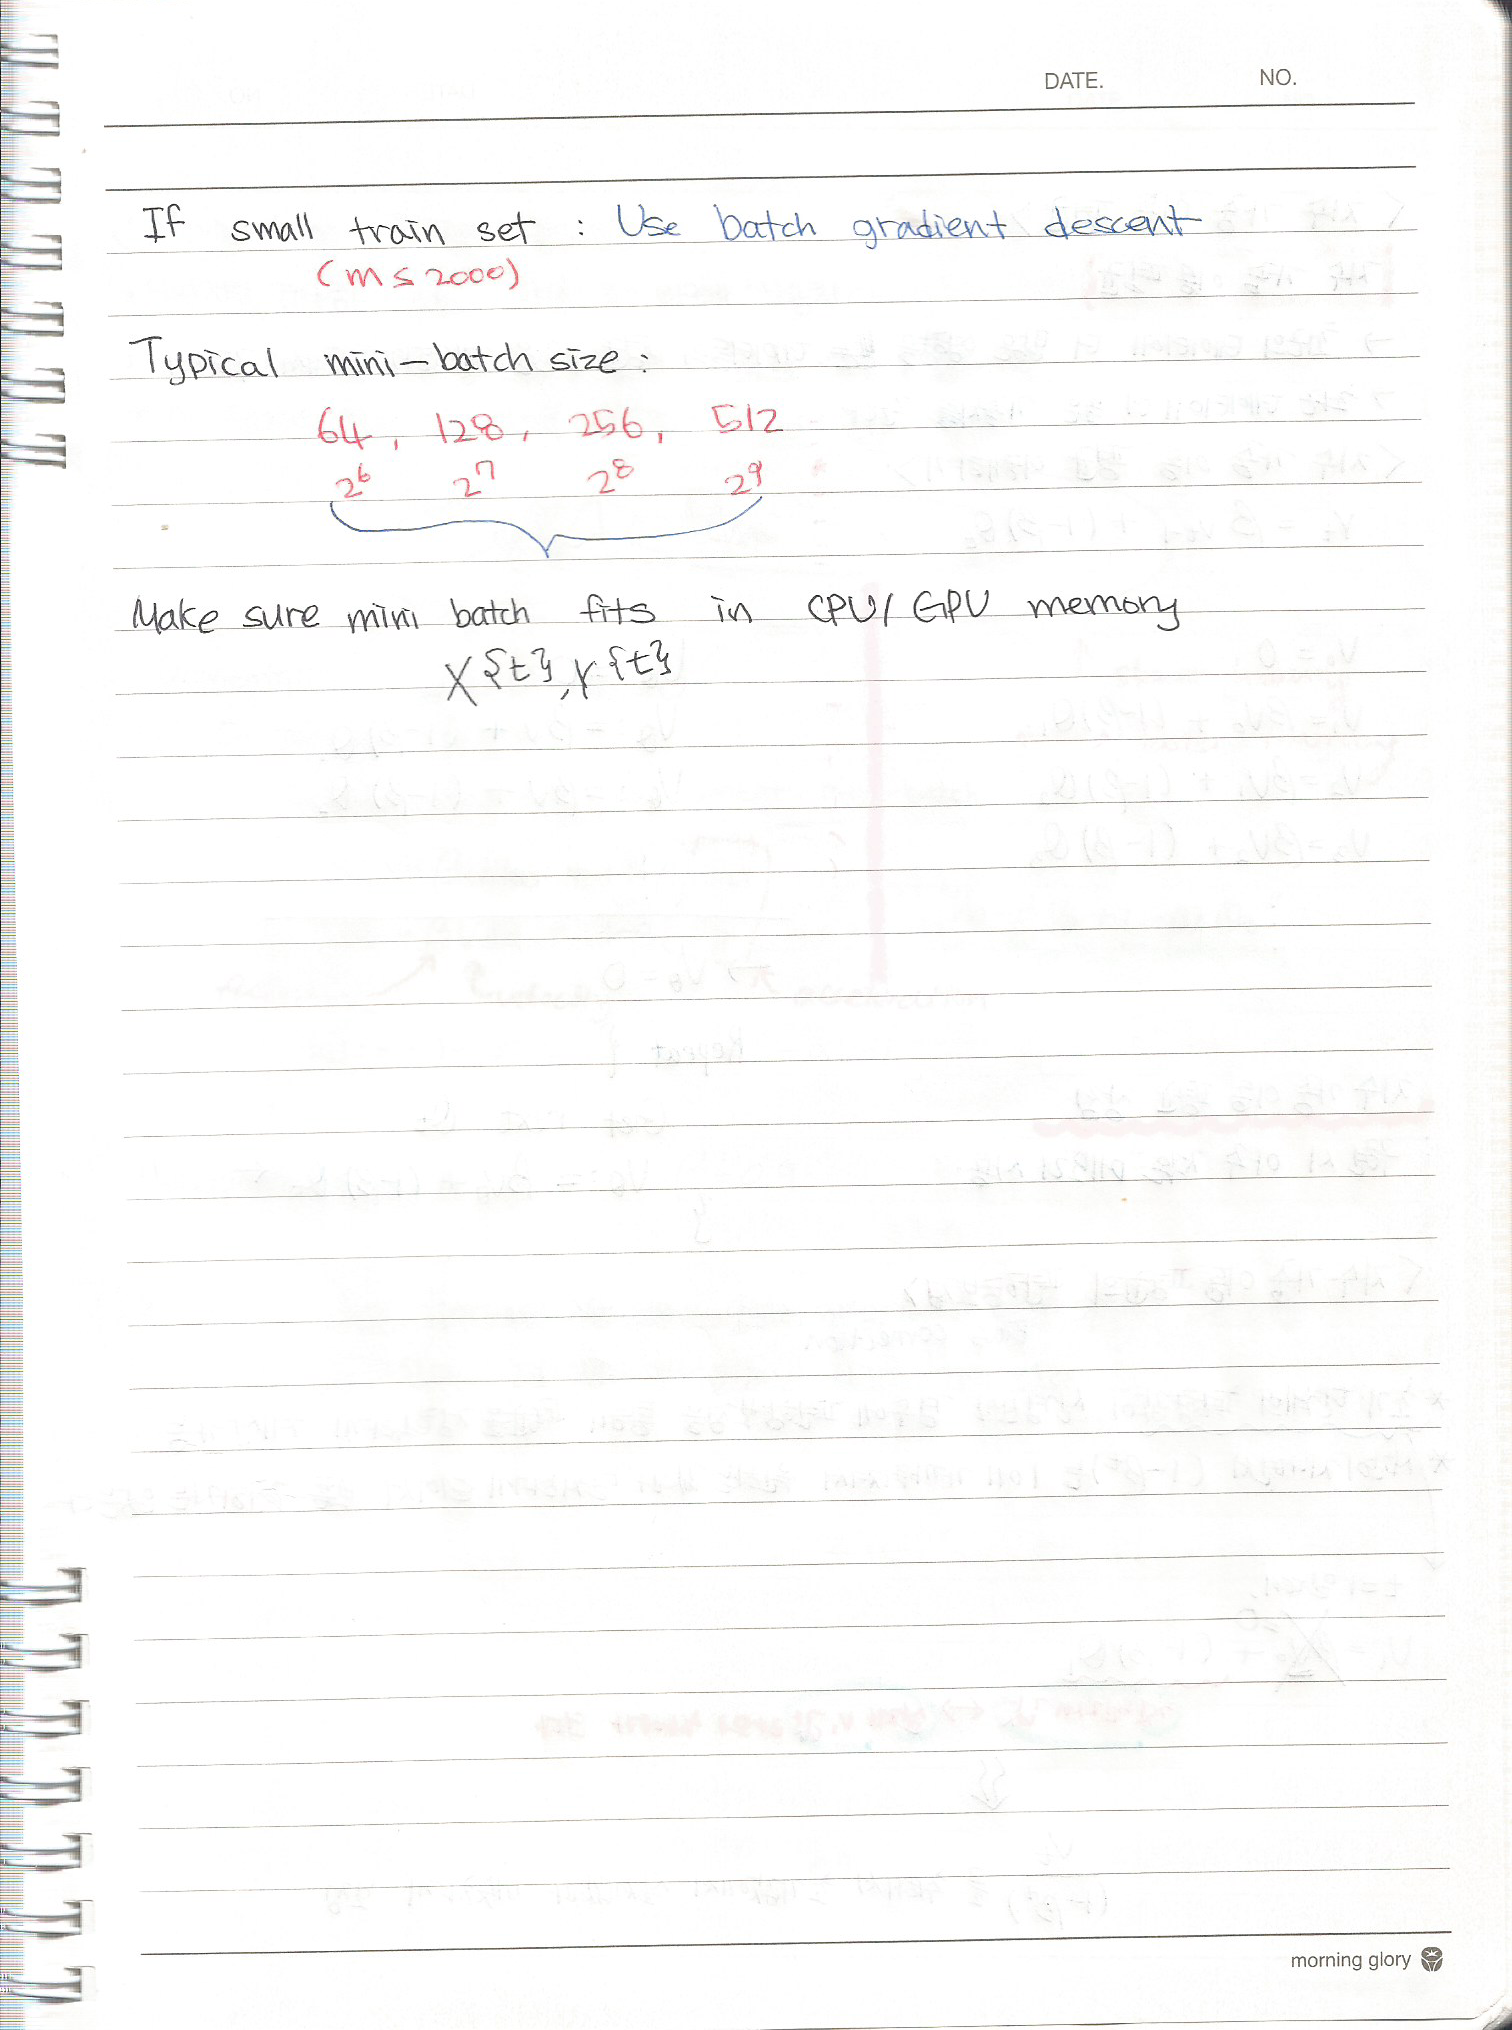 DATE. NO.
If small train set : Use batch gradient descent
(m ≤ 2000)
Typical mini-batch size :
64, 128, 256, 512
2^6 2^7 2^8 2^9
Make sure mini batch fits in CPU/GPU memory
X^{t}, Y^{t}
morning glory